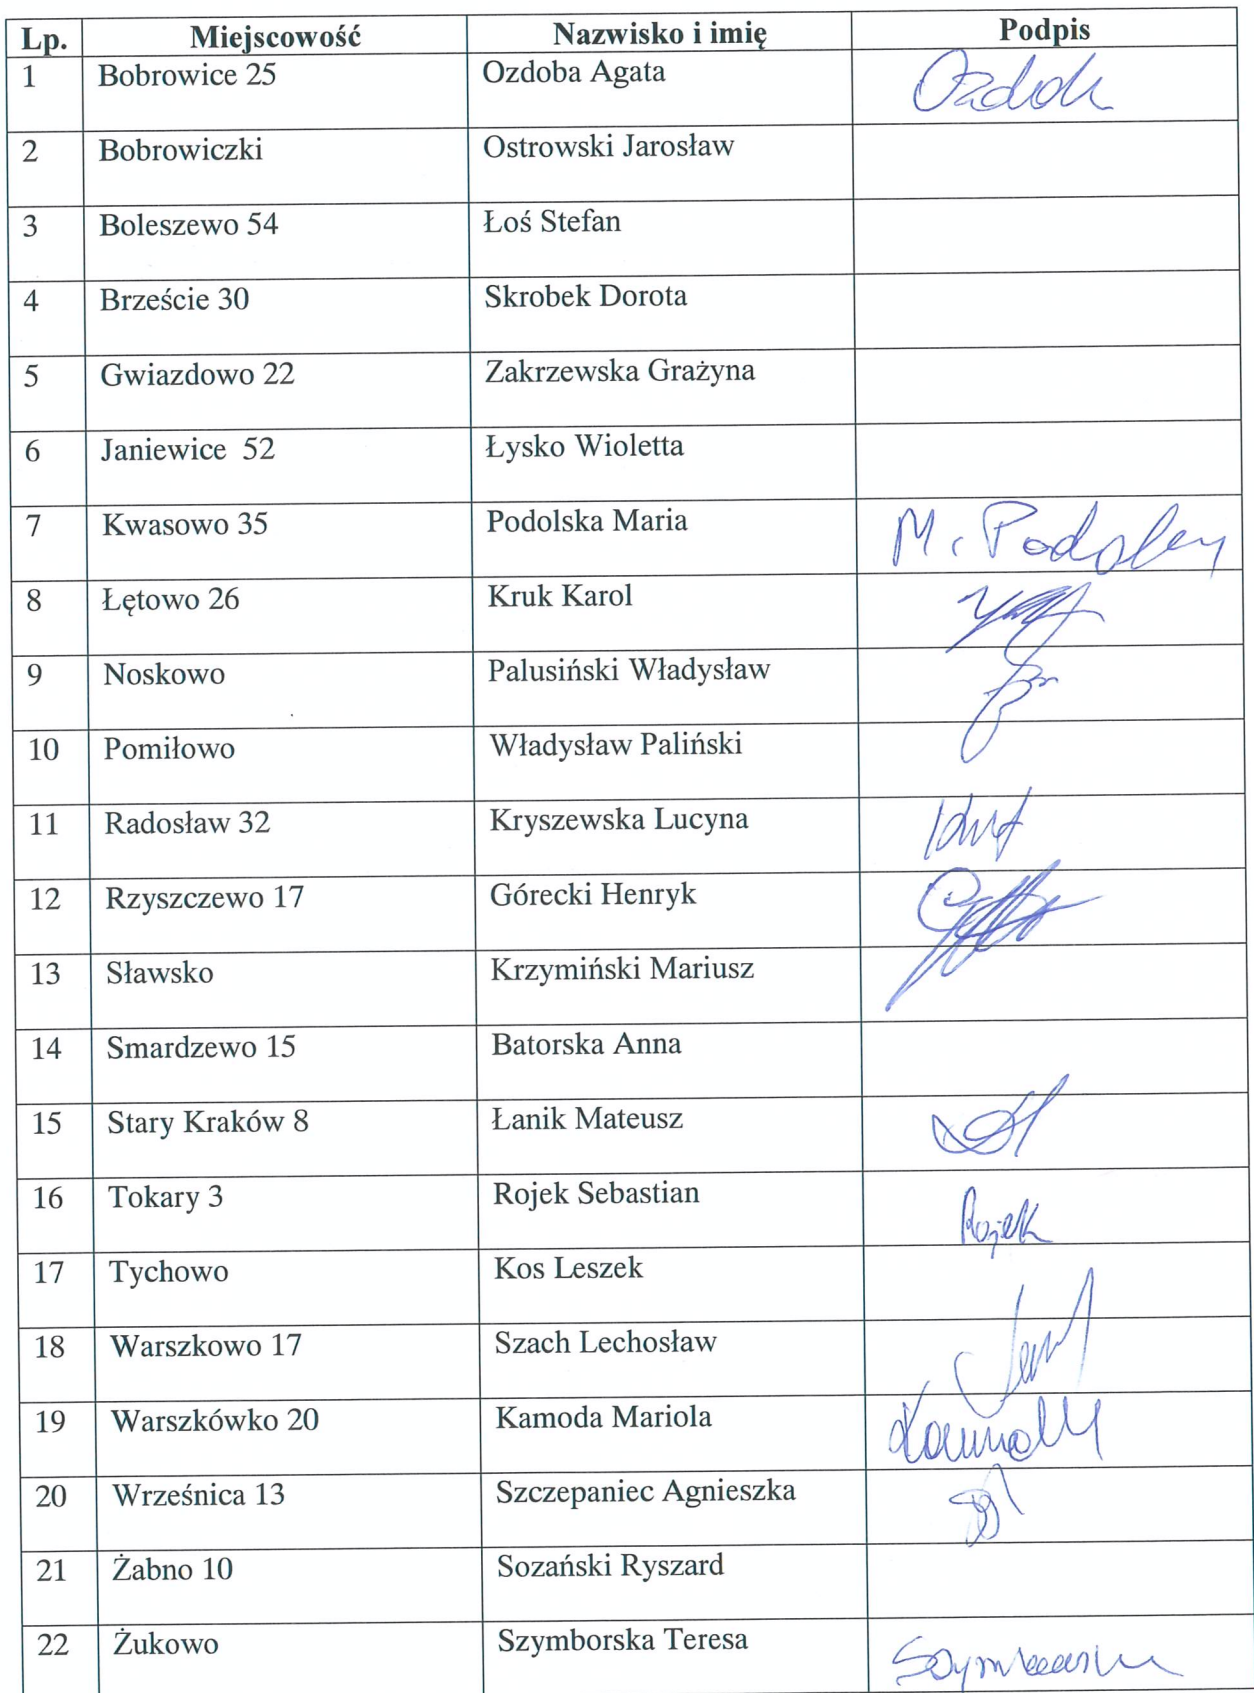 Lp. Miejscowość Nazwisko i imię Podpis
1 Bobrowice 25 Ozdoba Agata
2 Bobrowiczki Ostrowski Jarosław
3 Boleszewo 54 Łoś Stefan
4 Brzeście 30 Skrobek Dorota
5 Gwiazdowo 22 Zakrzewska Grażyna
6 Janiewice 52 Łysko Wioletta
7 Kwasowo 35 Podolska Maria M.
8 Łętowo 26 Kruk Karol
9 Noskowo Palusiński Władysław
10 Pomiłowo Władysław Paliński
11 Radosław 32 Kryszewska Lucyna
12 Rzyszczewo 17 Górecki Henryk
13 Sławsko Krzymiński Mariusz
14 Smardzewo 15 Batorska Anna
15 Stary Kraków 8 Łanik Mateusz
16 Tokary 3 Rojek Sebastian Rojek
17 Tychowo Kos Leszek
18 Warszkowo 17 Szach Lechosław
19 Warszkówko 20 Kamoda Mariola
20 Wrześnica 13 Szczepaniec Agnieszka
21 Żabno 10 Sozański Ryszard
22 Żukowo Szymborska Teresa